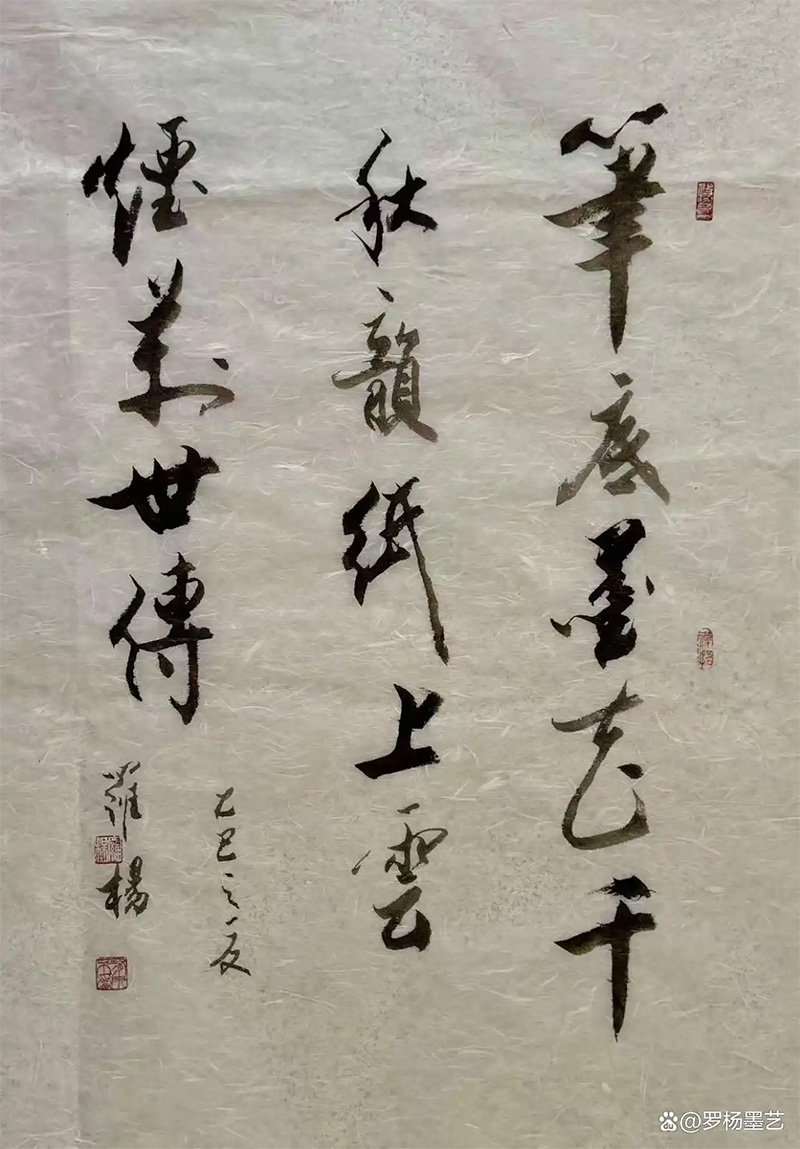 筆底墨花千
秋韻紙上雲
煙萬世傳
乙巳之夏
羅楊
@罗杨墨艺